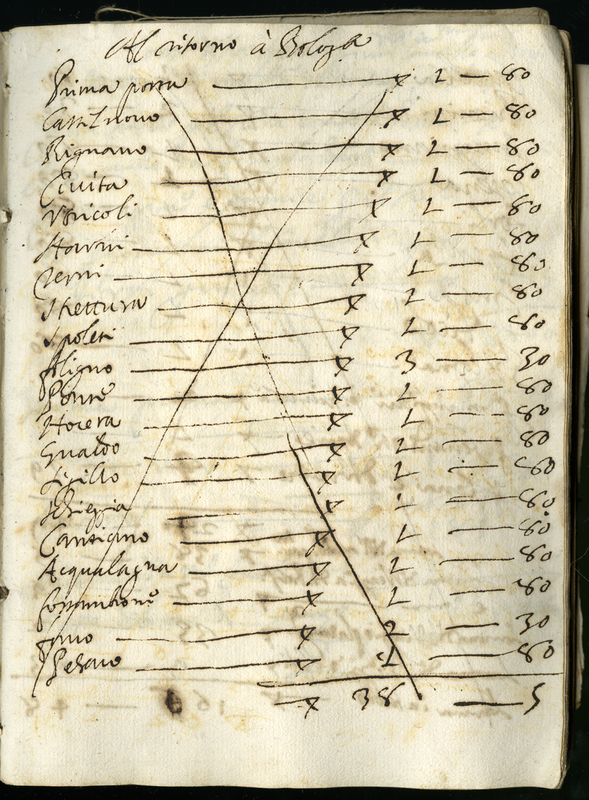 Al ritorno à Bologa
Prima porta — x 1 — 80
Castelnovo — x 1 — 80
Rignano — x 1 — 80
Civita — x 1 — 80
Utricoli — x 1 — 80
Narni — x 1 — 80
Terni — x 1 — 80
Strettura — x 1 — 80
Spoleti — x 1 — 80
Foligno — x 3 — 30
Ponte — x 1 — 80
Nocera — x 1 — 80
Gualdo — x 1 — 80
Sigillo — x 1 — 80
Scheggia — x 1 — 80
Cantiano — x 1 — 80
Acqualagna — x 1 — 80
x 1 — 80
Fano — x 2 — 30
Pesaro — x 1 — 80
x 38 — 5